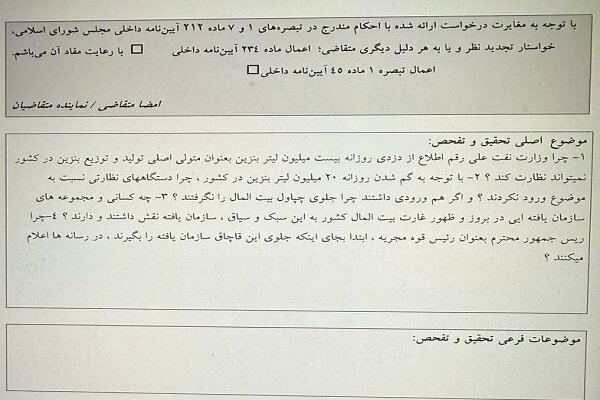 با توجه به مغایرت درخواست ارائه شده با احکام مندرج در تبصره‌های ۱ و ۷ ماده ۲۱۲ آیین‌نامه داخلی مجلس شورای اسلامی،
خواستار تجدید نظر و یا به هر دلیل دیگری متقاضی؛ اعمال ماده ۲۳۴ آیین‌نامه داخلی □ با رعایت مفاد آن می‌باشم.
اعمال تبصره ۱ ماده ۴۵ آیین‌نامه داخلی □
امضا متقاضی / نماینده متقاضیان
موضوع اصلی تحقیق و تفحص:
۱- چرا وزارت نفت علی رقم اطلاع از دزدی روزانه بیست میلیون لیتر بنزین بعنوان متولی اصلی تولید و توزیع بنزین در کشور
نمیتواند نظارت کند ؟ ۲- با توجه به گم شدن روزانه ۲۰ میلیون لیتر بنزین در کشور ، چرا دستگاههای نظارتی نسبت به
موضوع ورود نکردند ؟ و اگر هم ورودی داشتند چرا جلوی چپاول بیت المال را نگرفتند ؟ ۳- چه کسانی و مجموعه های
سازمان یافته ایی در بروز و ظهور غارت بیت المال کشور به این سبک و سیاق ، سازمان یافته نقش داشتند و دارند ؟ ۴-چرا
ریس جمهور محترم بعنوان رئیس قوه مجریه ، ابتدا بجای اینکه جلوی این قاچاق سازمان یافته را بگیرند ، در رسانه ها اعلام
میکنند ؟
موضوعات فرعی تحقیق و تفحص: